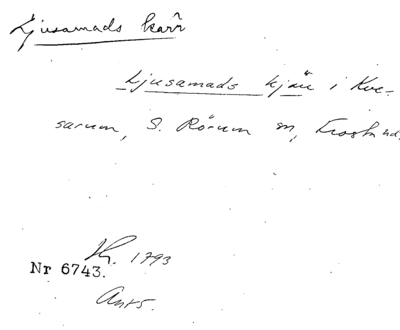 Ljusamads karr
Ljusamads kjär i Kve-
sarum, S. Rörum sn, Frosta hd.
Kr. 1793
Nr 6743.
Ants.